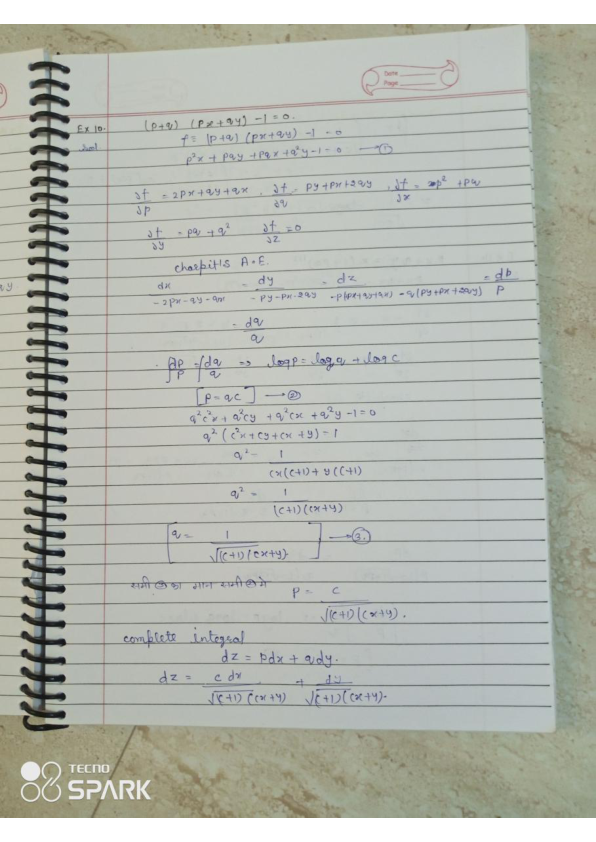 Name
Page
Ex 10. (p+q) (px+qy) -1 = 0.
Sol f = (p+q) (px+qy) - 1 = 0
p²x + pqy + pqx + q²y - 1 = 0 → ①
∂f/∂p = 2px + qy + qx , ∂f/∂q = py + px + 2qy , ∂f/∂x = p² + pq
∂f/∂y = pq + q² ∂f/∂z = 0
charpit's A.E.
dx/-2px-qy-qx = dy/-py-px-2qy = dz/-p(2px+qy+qx) -q(py+px+2qy) = dp/p
= dq/q
∫dp/p = ∫dq/q ⇒ log p = log q + log c
[p = qc] → ②
q²c²x + q²cy + q²cx + q²y - 1 = 0
q² (c²x + cy + cx + y) = 1
q² = 1/cx(c+1) + y(c+1)
q² = 1/(c+1)(cx+y)
[q = 1/√(c+1)(cx+y)] → ③.
समी ③ का मान समी ② मे p = c/√(c+1)(cx+y).
complete integral
dz = pdx + qdy.
dz = c dx/√(c+1)(cx+y) + dy/√(c+1)(cx+y).
TECNO
SPARK